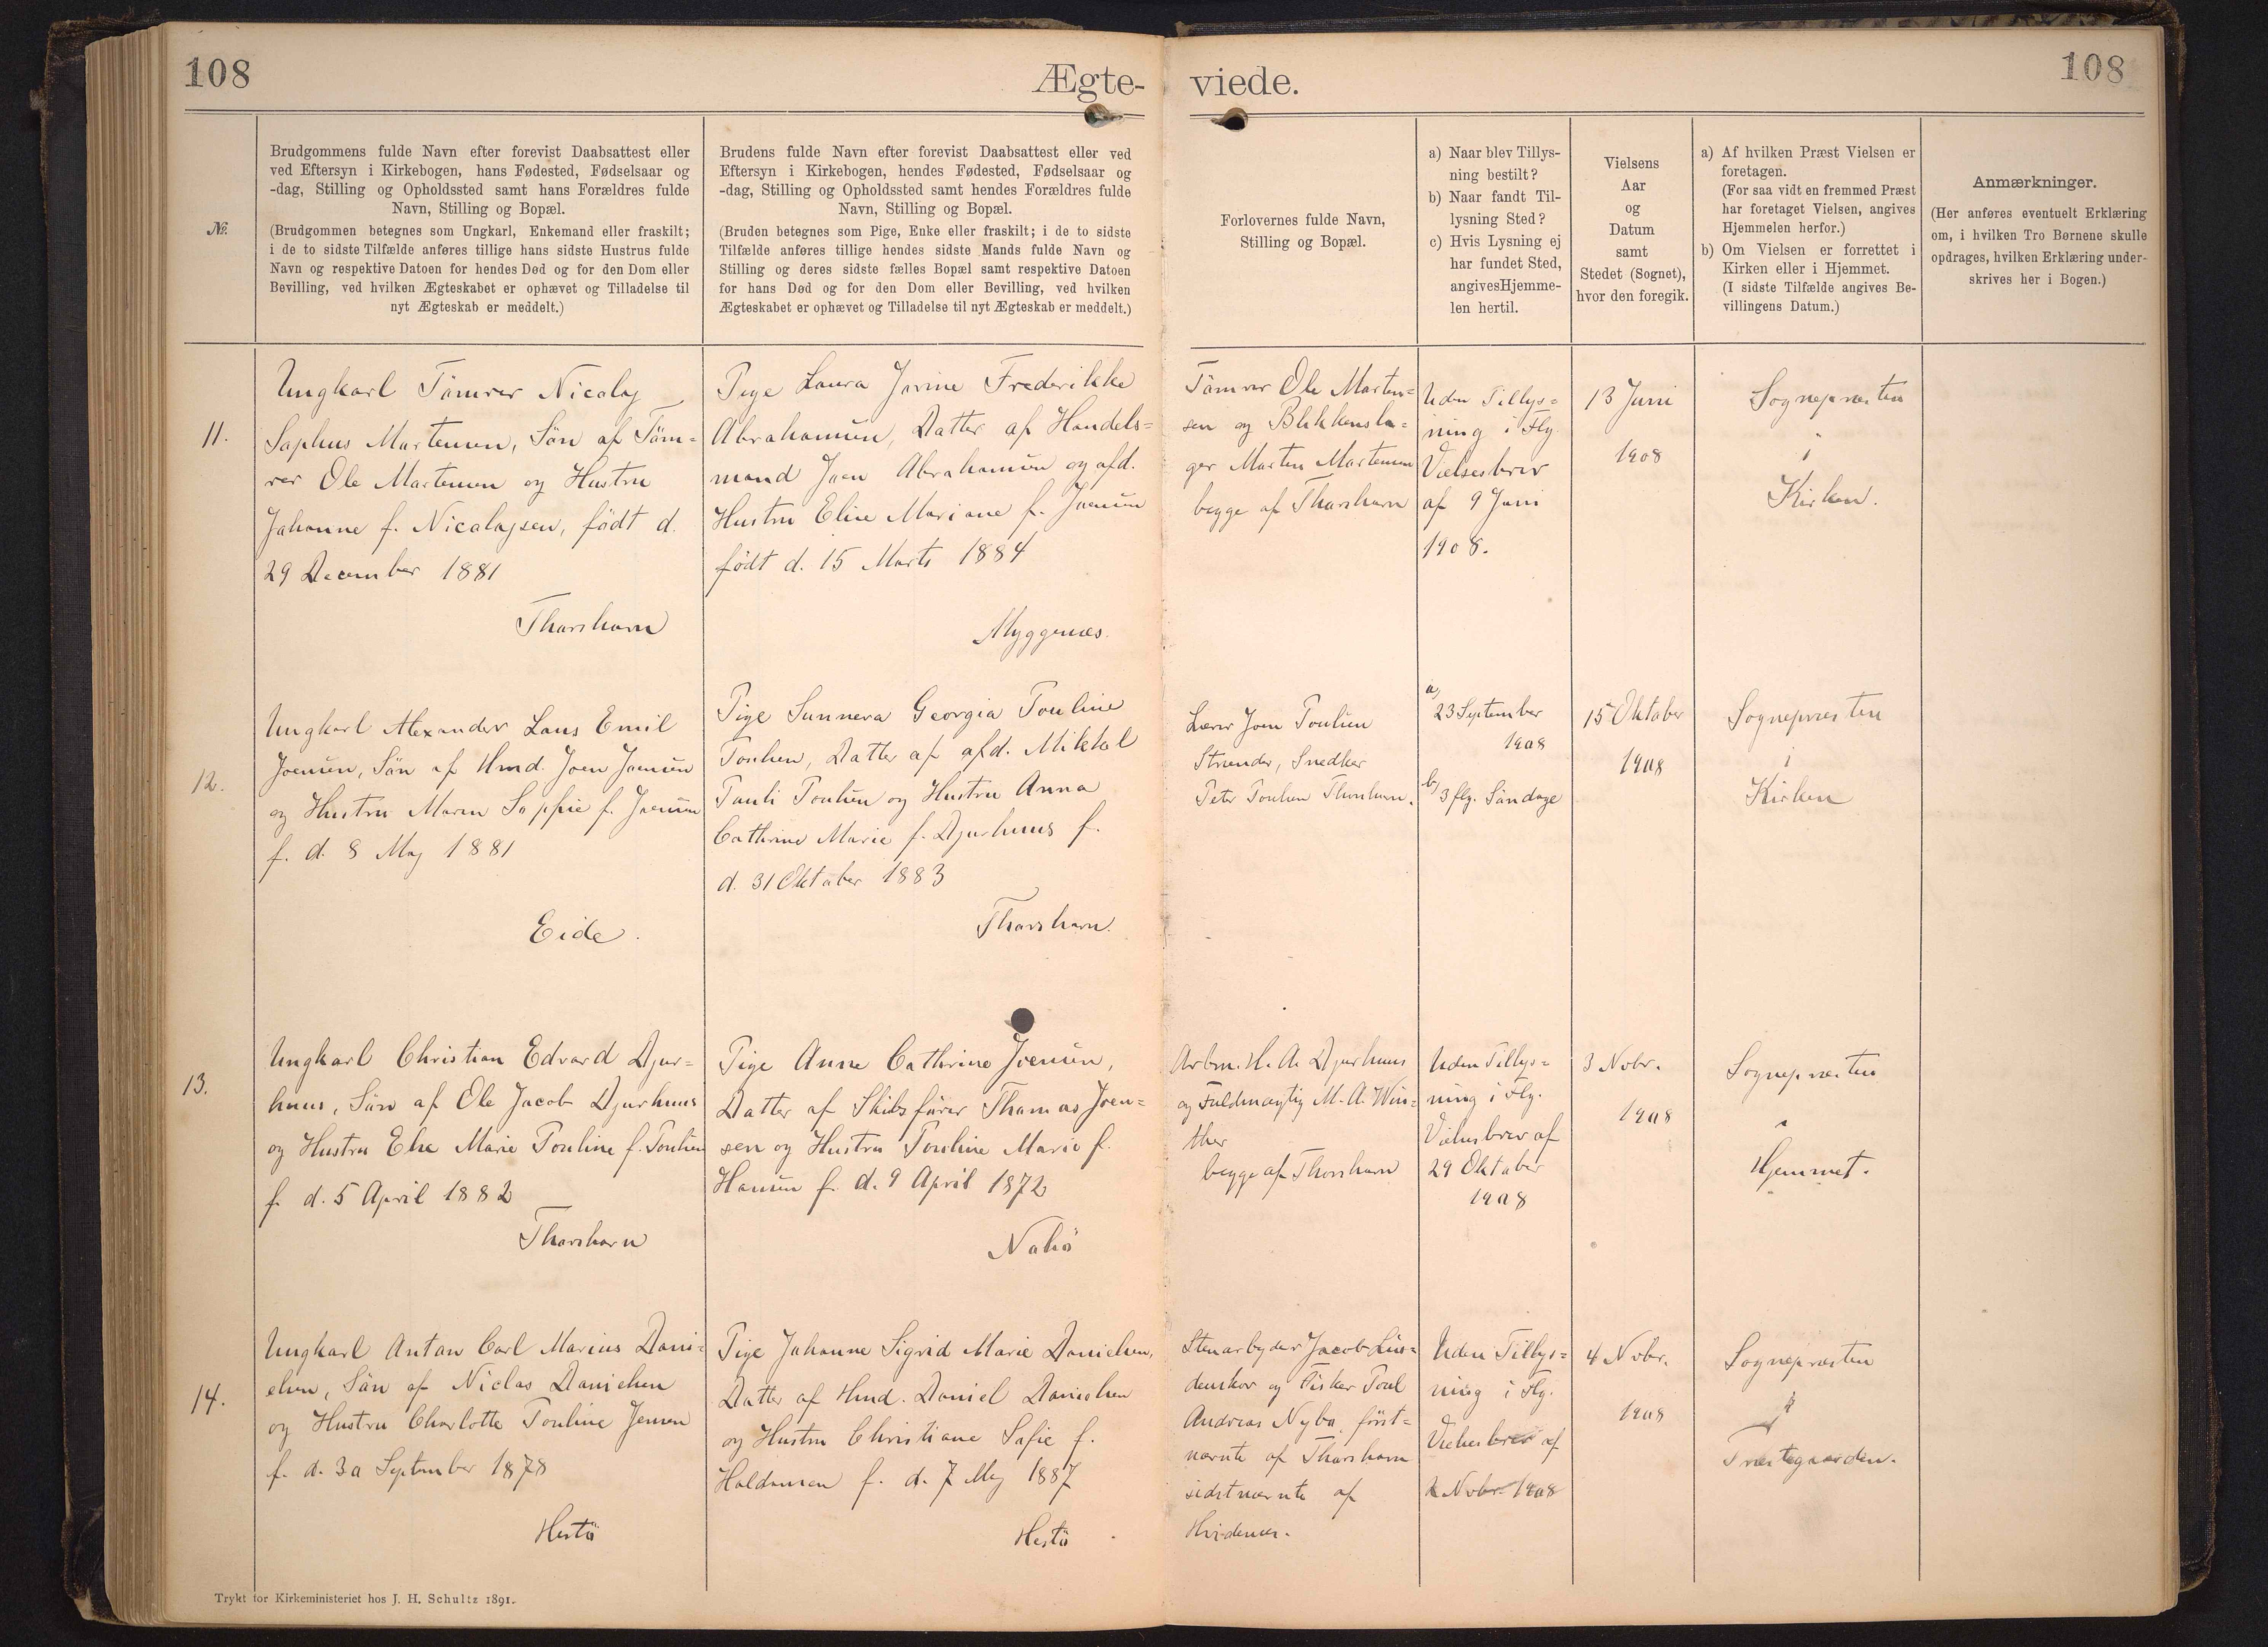 108
Ægte-
viede.
108
№.
Brudgommens fulde Navn efter forevist Daabsattest eller
ved Eftersyn i Kirkebogen, hans Fødested, Fødselsaar og
-dag, Stilling og Opholdssted samt hans Forældres fulde
Navn, Stilling og Bopæl.
(Brudgommen betegnes som Ungkarl, Enkemand eller fraskilt;
i de to sidste Tilfælde anføres tillige hans sidste Hustrus fulde
Navn og respektive Datoen for hendes Død og for den Dom eller
Bevilling, ved hvilken Ægteskabet er ophævet og Tilladelse til
nyt Ægteskab er meddelt.)
Brudens fulde Navn efter forevist Daabsattest eller ved
Eftersyn i Kirkebogen, hendes Fødested, Fødselsaar og
-dag, Stilling og Opholdssted samt hendes Forældres fulde
Navn, Stilling og Bopæl.
(Bruden betegnes som Pige, Enke eller fraskilt; i de to sidste
Tilfælde anføres tillige hendes sidste Mands fulde Navn og
Stilling og deres sidste fælles Bopæl samt respektive Datoen
for hans Død og for den Dom eller Bevilling, ved hvilken
Ægteskabet er ophævet og Tilladelse til nyt Ægteskab er meddelt.)
Forlovernes fulde Navn,
Stilling og Bopæl.
a) Naar blev Tillys-
ning bestilt?
b) Naar fandt Til-
lysning Sted?
c) Hvis Lysning ej
har fundet Sted,
angivesHjemme-
len hertil.
Vielsens
Aar
og
Datum
samt
Stedet (Sognet),
hvor den foregik.
a) Af hvilken Præst Vielsen er
foretagen.
(For saa vidt en fremmed Præst
har foretaget Vielsen, angives
Hjemmelen herfor.)
b) Om Vielsen er forrettet i
Kirken eller i Hjemmet.
(I sidste Tilfælde angives Be-
villingens Datum.)
Anmærkninger.
(Her anføres eventuelt Erklæring
om, i hvilken Tro Børnene skulle
opdrages, hvilken Erklæring under-
skrives her i Bogen.)
11.
Ungkarl Tömrer Nicolaj
Sophus Martensen, Sön af Töm-
rer Ole Martensen og Hustru
Johanne f. Nicolajsen, födt d.
29 December 1881
Thorshavn
Pige Laura Jovine Frederikke
Abrahamsen, Datter af Handels-
mand Joen Abrahamsen og afd.
Hustru Elise Mariane f. Joensen
födt d. 15 Marts 1884
Myggenæs.
Tömrer Ole Marten-
sen og Blikkensla-
ger Marten Martensen
begge af Thorshavn
Uden Tillys-
ning i Flg.
Vielsesbrev
af 9 Juni
1908.
13 Juni
1908
Sognepræsten
i
Kirken.
12.
Ungkarl Alexander Laus Emil
Joensen, Sön af Hmd. Joen Joensen
og Hustru Maren Sophie f. Joensen
f. d. 8 Maj 1881
Eide.
Pige Sunneva Georgia Pouline
Poulsen, Datter af afd. Mikkal
Pauli Poulsen og Hustru Anna
Cathrine Marie f. Djurhuus f.
d. 31 Oktober 1883
Thorshavn.
Lærer Joen Poulsen
Strænder, Snedker
Peter Poulsen Thorshavn.
a) 23 September
1908
b) 3 flg. Söndage
15 Oktober
1908
Sognepræsten
i
Kirken
13.
Ungkarl Christian Edvard Djur-
huus, Sön af Ole Jacob Djurhuus
og Hustru Else Marie Pouline f. Poulsen
f. d. 5 April 1882
Thorshavn
Pige Anne Cathrine Joensen,
Datter af Skibsförer Thomas Joen-
sen og Hustru Pouline Marie f.
Hansen f. d. 9 April 1872
Nolsö
Arbm. H. A. Djurhuus
og Fuldmægtig M. A. Win-
ther
begge af Thorshavn
Uden Tillys-
ning i Flg.
Vielsesbrev af
29 Oktober
1908
3 Nobr.
1908
Sognepræsten
i
Hjemmet.
14.
Ungkarl Anton Carl Marius Dani-
elsen, Sön af Niclas Danielsen
og Hustru Charlotte Pouline Jensen
f. d. 30 September 1878
Hestö
Pige Johanne Sigrid Marie Danielsen,
Datter af Hmd. Daniel Danielsen
og Hustru Christiane Sofie f.
Holdensen f. d. 7 Maj 1887
Hestö
Stenarbejder Jacob Lin-
denskov og Fisker Poul
Andreas Nybo, först-
nævnte af Thorshavn
sidstnævnte af
Hvidenæs.
Uden Tillys-
ning i Flg.
Vielsesbrev af
Nobr. 1908
4 Nobr.
1908
Sognepræsten
i
Præstegaarden.
Trykt for Kirkeministeriet hos J. H. Schultz 1891.